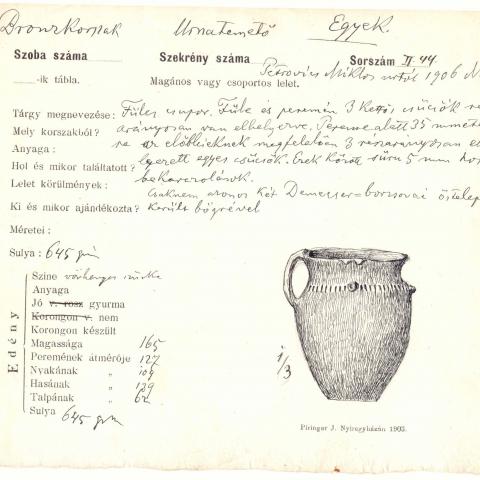 Bronzkorszak Urnatemető Egyek.
Szoba száma Szekrény száma Sorszám II. 44.
-ik tábla. Magános vagy csoportos lelet. Petrovics Miklós úrtól 1906
Tárgy megnevezése: Füles csupor. Füle és peremén 3 kettős csücsök
Mely korszakból? arányosan van elhelyezve. Pereme alatt 35
Anyaga: az előbbieknek megfelelően 3
Hol és mikor találtatott? egyes csücsök. Ezek között sűrű 5 mm
Lelet körülmények: bekarcolások.
Csaknem azonos két Demecser-borzsovai
Ki és mikor ajándékozta? került bögrével
Méretei:
Sulya: 645 gr
Edény
Szine vörhenyes szürke
Anyaga
Jó v. rosz gyurma
Korongon v. nem
Korongon készült
Magassága 165
Peremének átmérője 127
Nyakának " 109
Hasának " 139
Talpának " 62
Sulya 645 gr
1/3
Piringer J. Nyiregyházán 1903.